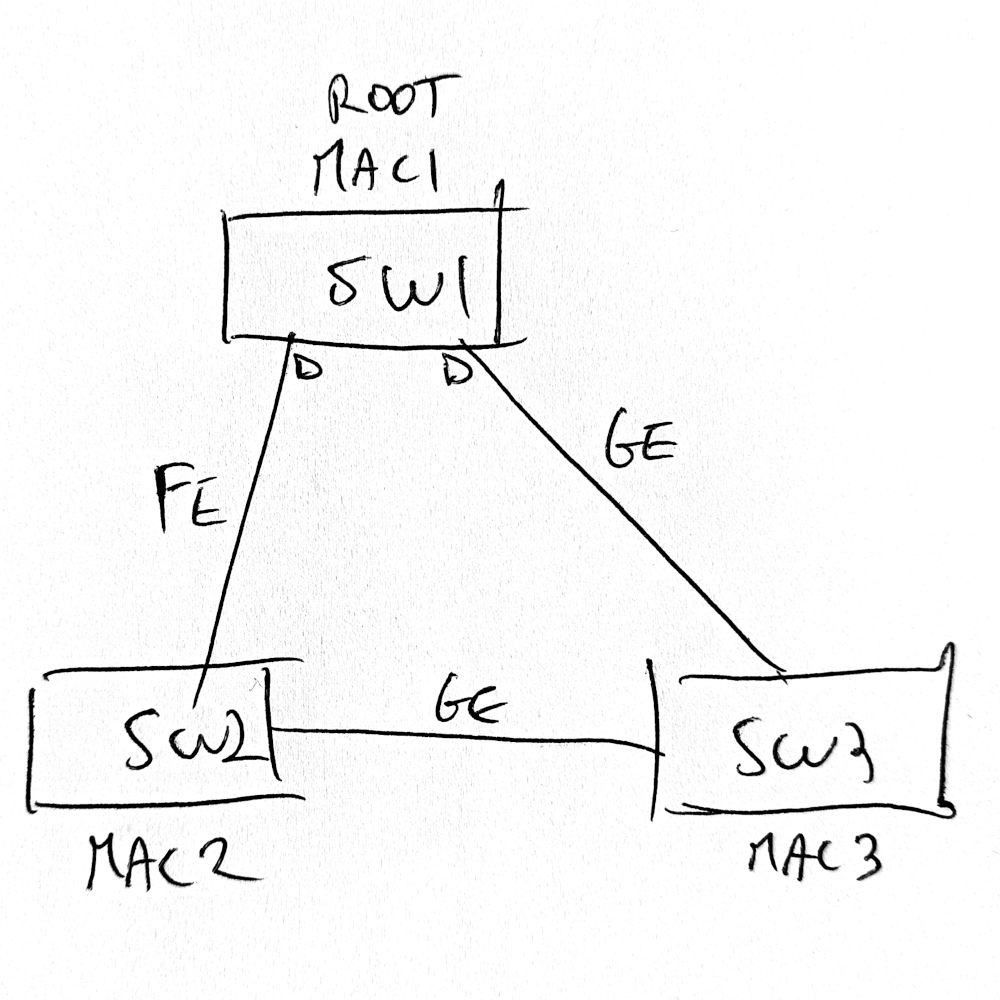 ROOT
MAC1
SW1
D
D
GE
FE
GE
SW2
SW3
MAC2
MAC3